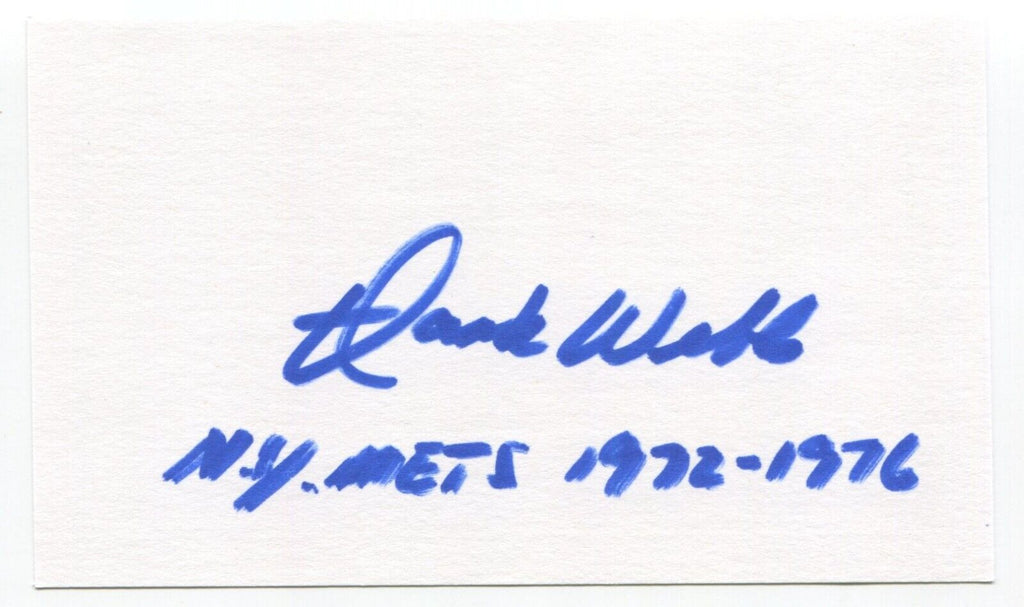 Hank Webb
N.Y. METS 1972-1976